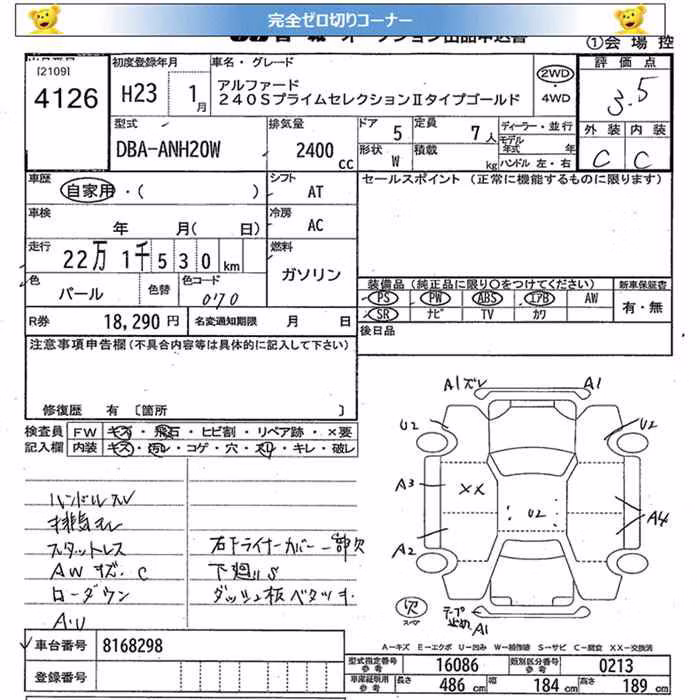 完全ゼロ切りコーナー
①会場控
[2109]
4126
初度登録年月
H23 1月
車名・グレード
アルファード
240SプライムセレクションⅡタイプゴールド
2WD
・
4WD
評価点
3.5
外装 内装
C C
型式
DBA-ANH20W
排気量
2400 cc
ドア 5
定員 7人
形状 W
積載 kg
ディーラー・並行
モデル年式 年
ハンドル 左・右
車歴
自家用・( )
シフト AT
車検
年 月( 日)
冷房 AC
走行
22万1千530km
燃料
ガソリン
色
パール
色替
色コード
070
R券 18,290円
名変通知期限 月 日
セールスポイント (正常に機能するものに限ります)
装備品 (純正品に限り○をつけてください)
PS PW ABS エアB AW
SR ナビ TV カワ
新車保証書
有・無
後日品
注意事項申告欄(不具合内容等は具体的に記入して下さい)
修復歴 有 [箇所 ]
検査員記入欄
FW キズ・飛石・ヒビ割・リペア跡・×要
内装 キズ・汚レ・コゲ・穴・スレ・キレ・破レ
ハンドルスレ
スタットレス
AW キズ・C
ローダウン
右ドライナーカバー一部欠
下廻りS
ダッシュ板ベタツキ
A1ズレ
A1
U2
U2
A3
XX
U2
A4
A2
欠
スペア
テープ
A1
A-キズ E-エクボ U-凹み W-補修跡 S-サビ C-腐食 XX-交換済
車台番号 8168298
登録番号
型式指定番号参考 16086
類別区分番号参考 0213
車庫証明用参考
長さ 486cm
幅 184cm
高さ 189cm